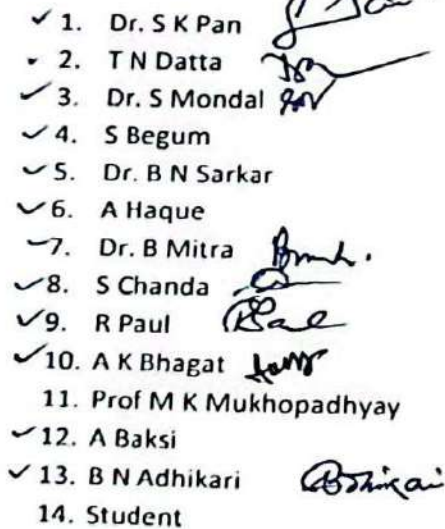 1. Dr. S K Pan
2. T N Datta
3. Dr. S Mondal
4. S Begum
5. Dr. B N Sarkar
6. A Haque
7. Dr. B Mitra
8. S Chanda
9. R Paul
10. A K Bhagat
11. Prof M K Mukhopadhyay
12. A Baksi
13. B N Adhikari
14. Student